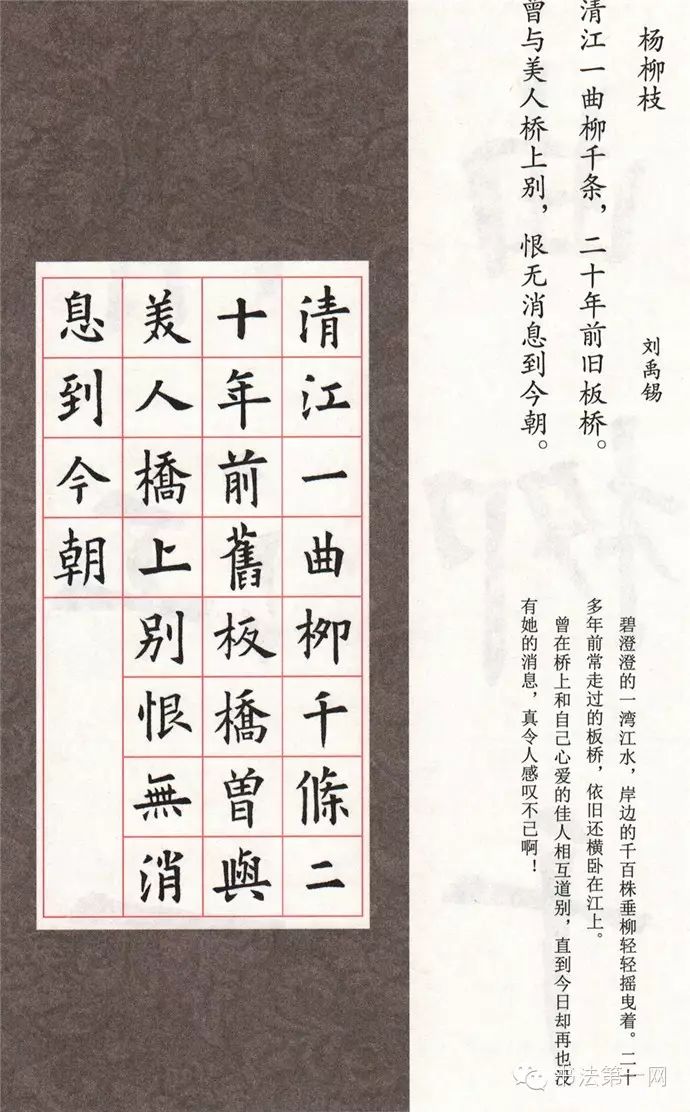 杨柳枝
刘禹锡
清江一曲柳千条，二十年前旧板桥。
曾与美人桥上别，恨无消息到今朝。
碧澄澄的一湾江水，岸边的千百株垂柳轻轻摇曳着。二十
多年前常走过的板桥，依旧还横卧在江上。
曾在桥上和自己心爱的佳人相互道别，直到今日却再也没
有她的消息，真令人感叹不已啊！
清江一曲柳千條二
十年前舊板橋曾與
美人橋上别恨無消
息到今朝
书法第一网